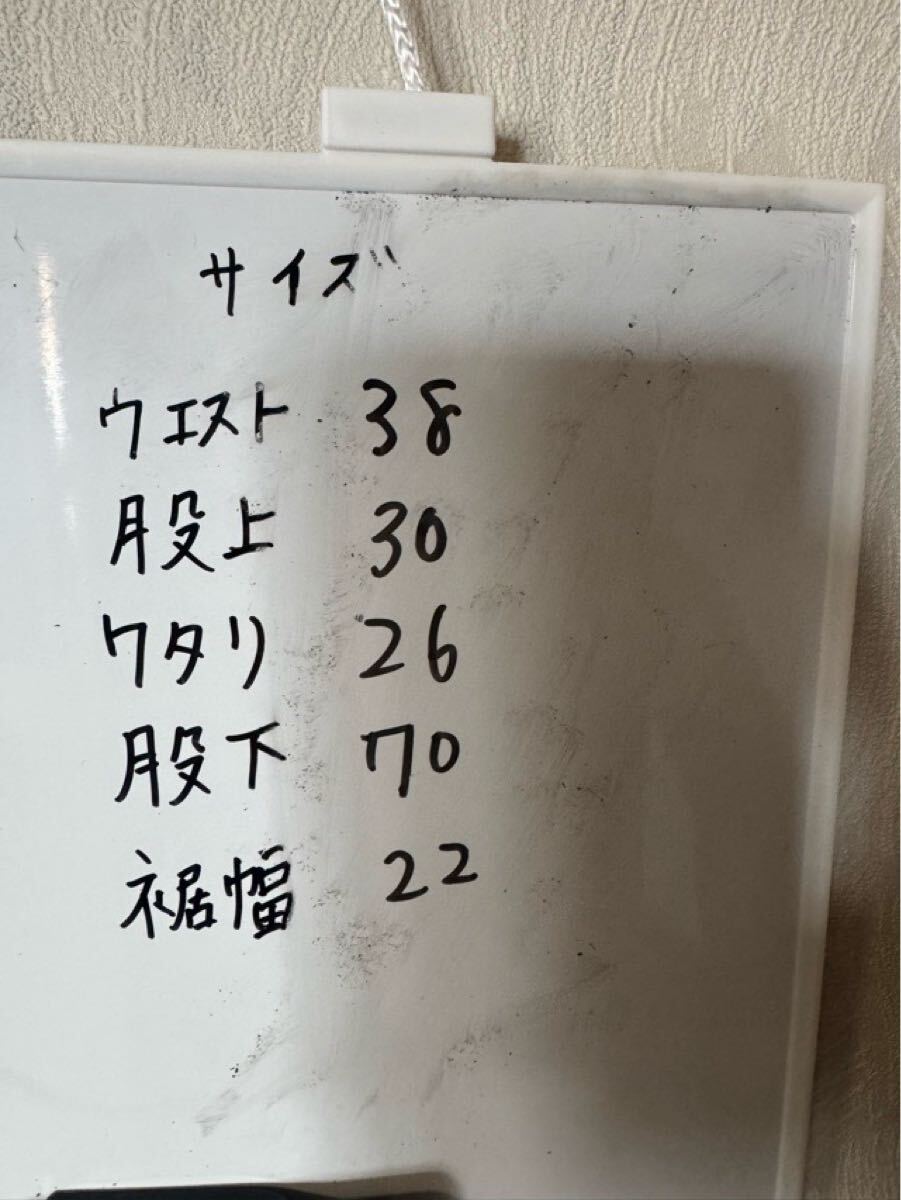 サイズ
ウエスト 38
股上 30
ワタリ 26
股下 70
裾幅 22